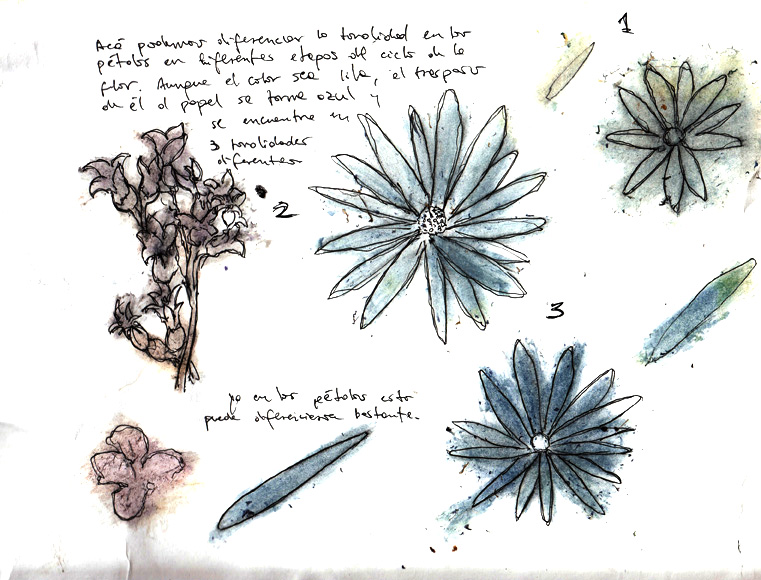 Acá podemos diferenciar la tonalidad en los
pétalos en diferentes etapas del ciclo de la
flor. Aunque el color sea lila, el traspaso
de él al papel se torna azul y
se encuentra en
3 tonalidades
diferentes
1
2
3
ya en los pétalos esto
puede diferenciarse bastante.